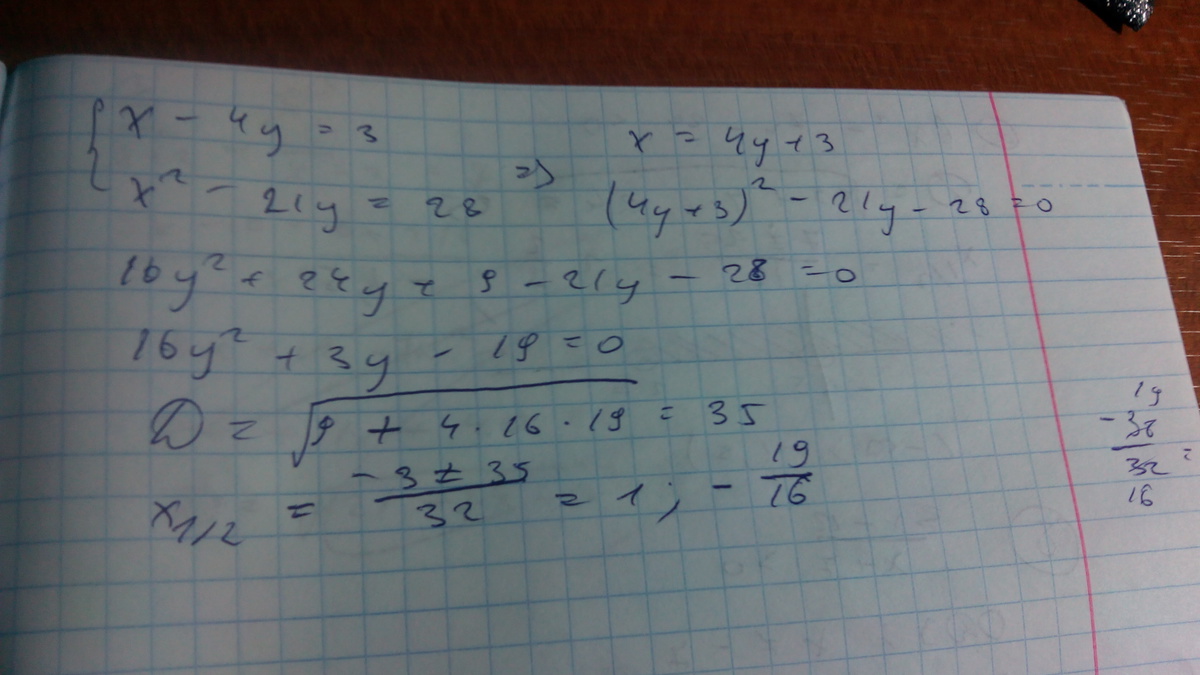 { x - 4y = 3
x² - 21y = 28
=> x = 4y + 3
(4y + 3)² - 21y - 28 = 0
16y² + 24y + 9 - 21y - 28 = 0
16y² + 3y - 19 = 0
D = √(9 + 4 · 16 · 19) = 35
x1/2 = (-3 ± 35)/32 = 1 ; - 19/16
19
16